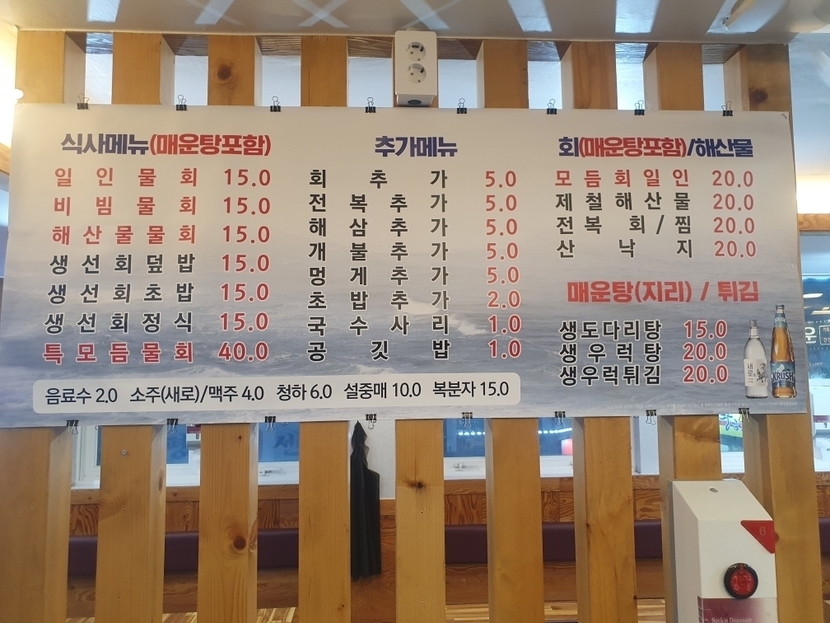 식사메뉴(매운탕포함)
일인물회 15.0
비빔물회 15.0
해산물물회 15.0
생선회덮밥 15.0
생선회초밥 15.0
생선회정식 15.0
특모듬물회 40.0
추가메뉴
회추가 5.0
전복추가 5.0
해삼추가 5.0
개불추가 5.0
멍게추가 5.0
초밥추가 2.0
국수사리 1.0
공깃밥 1.0
회(매운탕포함)/해산물
모듬회일인 20.0
제철해산물 20.0
전복회/찜 20.0
산낙지 20.0
매운탕(지리) / 튀김
생도다리탕 15.0
생우럭탕 20.0
생우럭튀김 20.0
새로
KRUSH
음료수 2.0 소주(새로)/맥주 4.0 청하 6.0 설중매 10.0 복분자 15.0
6